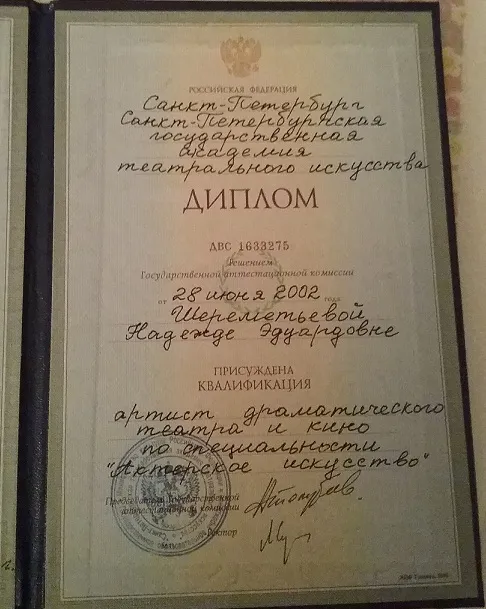 РОССИЙСКАЯ ФЕДЕРАЦИЯ
Санкт-Петербург
Санкт-Петербургская
государственная
академия
театрального искусства
ДИПЛОМ
ДВС 1633275
Решением
Государственной аттестационной комиссии
от 28 июня 2002 года
Шереметьевой
Надежде Эдуардовне
ПРИСУЖДЕНА
КВАЛИФИКАЦИЯ
артист драматического
театра и кино
по специальности
"Актерское искусство"
Председатель Государственной
аттестационной комиссии
Ректор